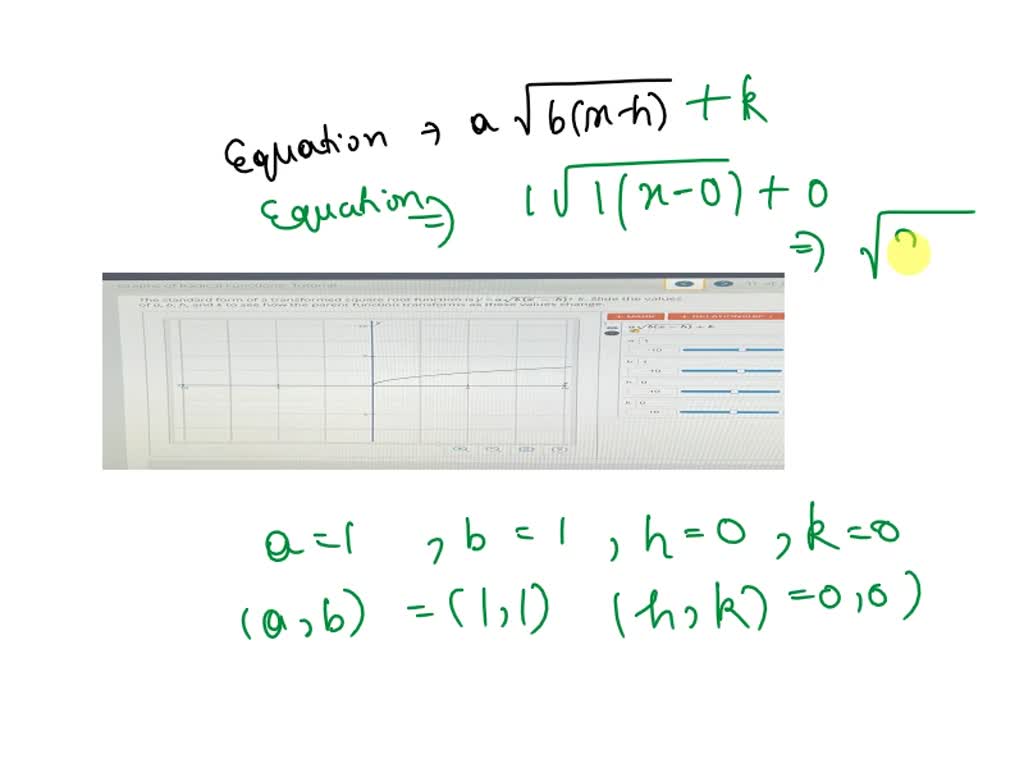 Equation → a √b(x-h) + k
Equation ⇒ 1√1(x-0) + 0
⇒ √
Graphs of Radical Functions: Tutorial
The standard form of a transformed square root function is y = a√b(x − h) + k. Slide the values
of a, b, h, and k to see how the parent function transforms as these values change.
+ RELATIONSHIP
a√b(x − h) + k
a: 1
-10
b: 1
-10
h: 0
-10
k: 0
-10
a=1 , b = 1 , h=0 , k=0
(a,b) = (1,1) (h,k) =0,0)